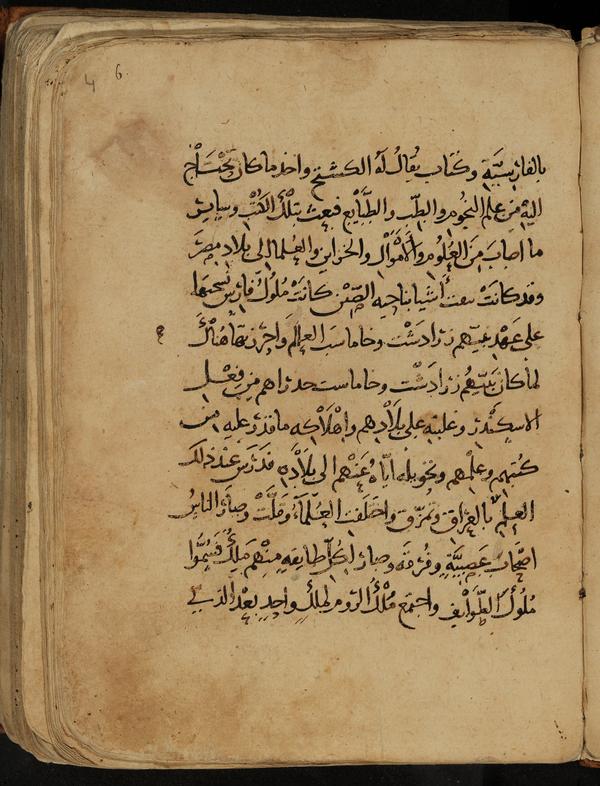 4 6
بالفارسيية وكتاب يقال له الكشتج واخد ما كان يحتاج
اليه من علم النجوم والطب والطبايع فبعث بتلك الكتب وساير
ما اصاب من العلوم والاموال والخزاين والعلما الى بلاد مصر
وقد كانت بقت أشيا بناحيه الصين كانت ملوك فارس نسختها
على عهد نبيهم زرادشت وجاماسب العالم واحرزتها هناك
لما كان نبيهم زرادشت وجاماست حدراهم من فعل
الاسكندر وغلبته على بلادهم واهلاكه ما قدر عليه من
كتبهم وعلمهم وتحويله اياه عنهم الى بلاده فدرس عند ذلك
العلم بالعراق وتمزق واختلفت العلماء وقلت وصار الناس
اصحاب عصبية وفرقه وصار لكل طايفه منهم ملك فسموا
ملوك الطوايف واجتمع ملك الروم لملك واحد بعد الذي